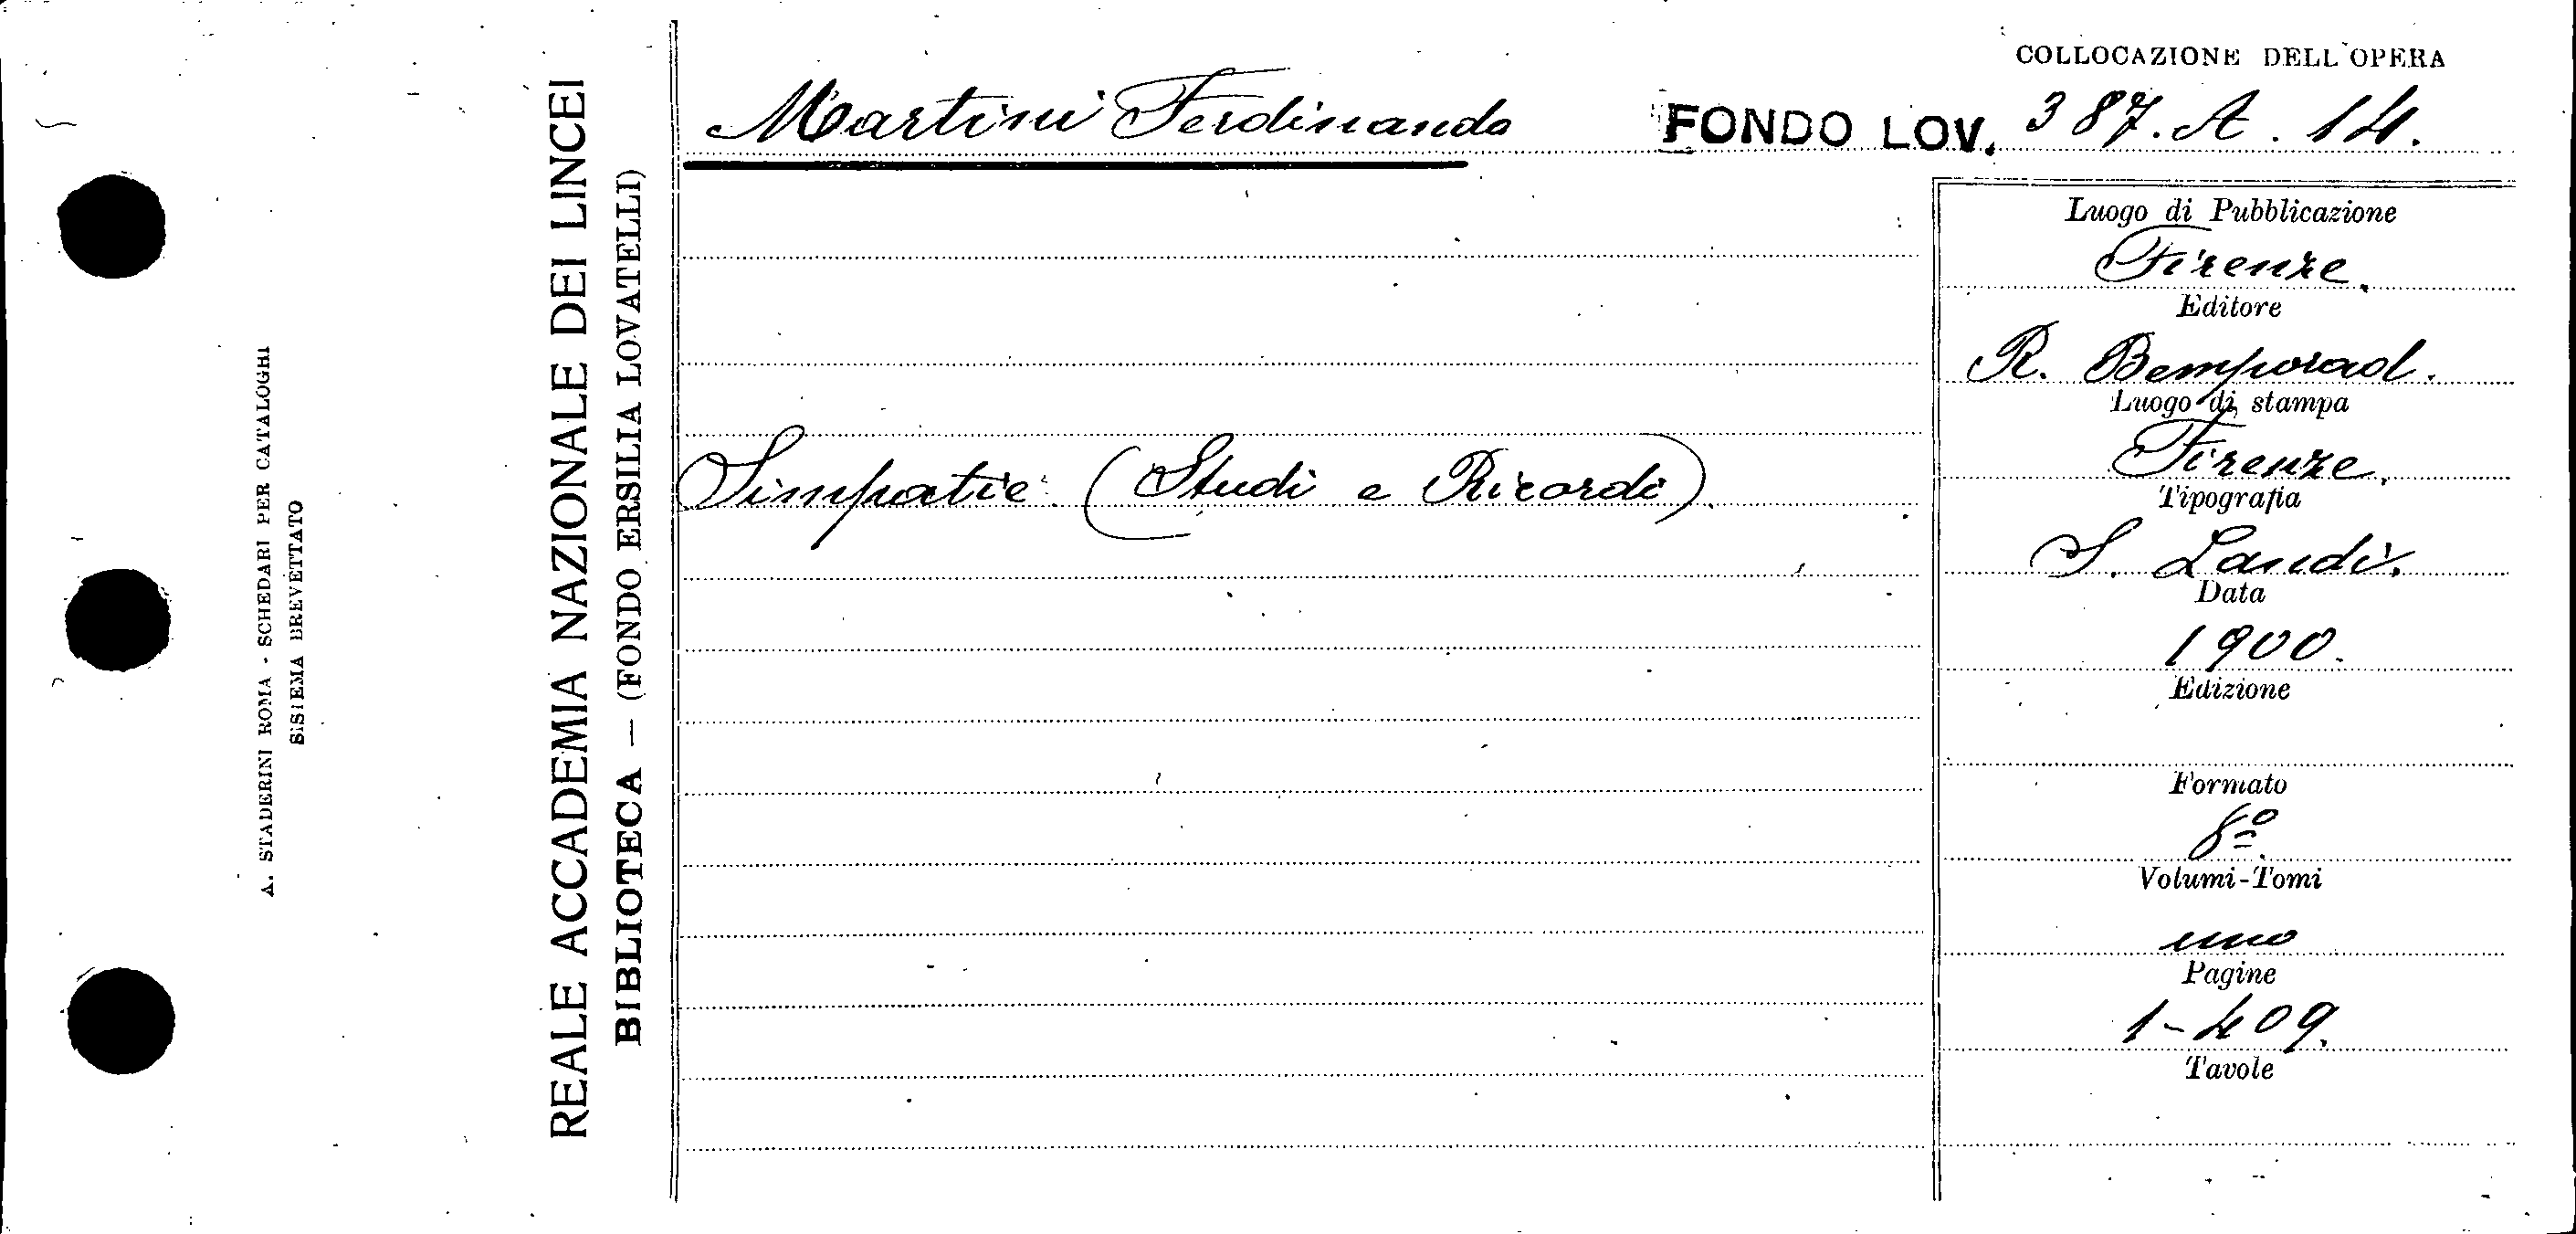 A. STADERINI ROMA - SCHEDARI PER CATALOGHI
SISTEMA BREVETTATO
REALE ACCADEMIA NAZIONALE DEI LINCEI
BIBLIOTECA — (FONDO ERSILIA LOVATELLI)
COLLOCAZIONE DELL'OPERA
Martini Ferdinando FONDO LOV. 387. A. 14.
Simpatie (Studi e Ricordi).
Luogo di Pubblicazione
Firenze.
Editore
R. Bemporad.
Luogo di stampa
Firenze.
Tipografia
S. Landi.
Data
1900.
Edizione
Formato
8º.
Volumi-Tomi
uno
Pagine
1-409.
Tavole